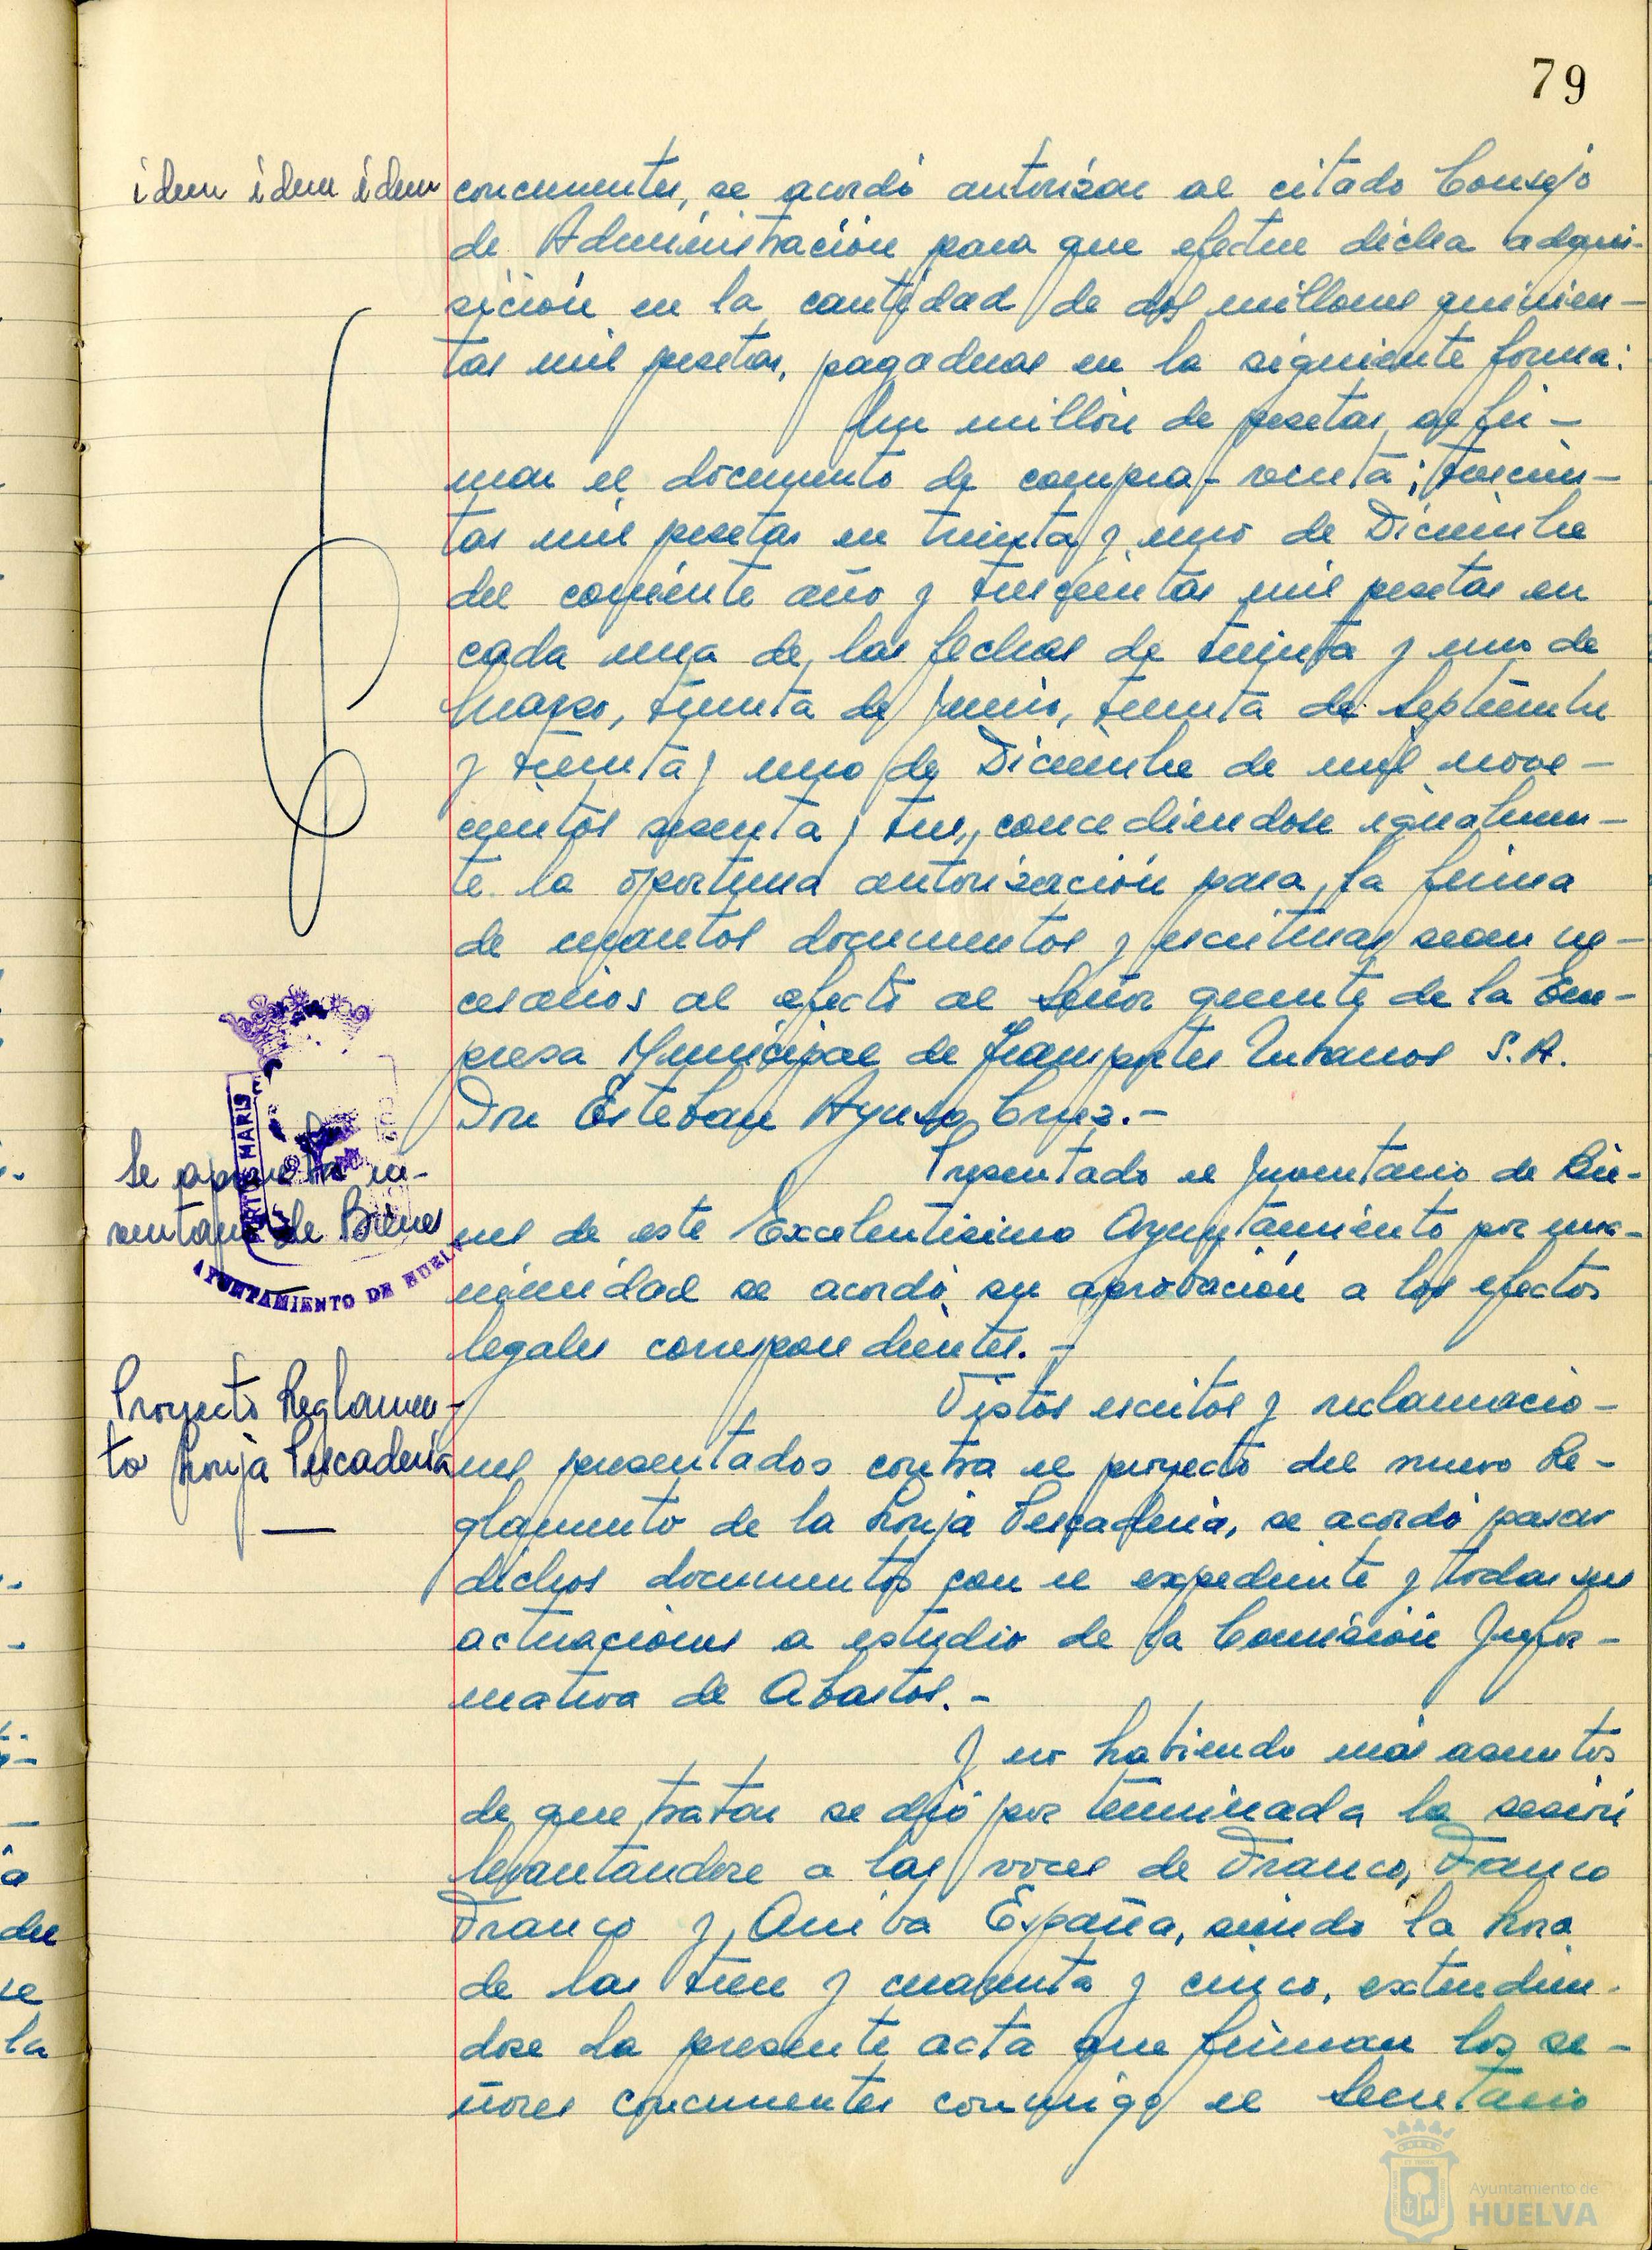 79
idem idem idem
concurrentes, se acordó autorizar al citado Consejo
de Administración para que efectue dicha adqui-
sición en la cantidad de dos millones quinien-
tas mil pesetas, pagaderas en la siguiente forma:
Un millón de pesetas al fir-
mar el documento de compra-venta; trescien-
tas mil pesetas en treinta y uno de Diciembre
del corriente año y trescientas mil pesetas en
cada una de las fechas de treinta y uno de
Marzo, treinta de Junio, treinta de Septiembre
y treinta y uno de Diciembre de mil nove-
cientos sesenta y tres, concediendose igualmen-
te la oportuna autorización para la firma
de cuantos documentos y escrituras sean ne-
cesarios al efecto al Señor gerente de la Em-
presa Municipal de Transportes Urbanos S.A.
Don Esteban Ayuso Cruz.-
Se aprueba in-
ventario de Bienes
PORTUS MARIS
AYUNTAMIENTO DE HUELVA
Presentado el Inventario de Bie-
nes de este Excelentisimo Ayuntamiento por una-
nimidad se acordó su aprobación a los efectos
legales correspondientes.-
Proyecto Reglamen-
to Lonja Pescaderia
Vistos escritos y reclamacio-
nes presentados contra el proyecto del nuevo Re-
glamento de la Lonja Pescaderia, se acordó pasar
dichos documentos con el expediente y todas sus
actuaciones a estudio de la Comisión Infor-
mativa de Abastos.-
Y no habiendo más asuntos
de que tratar se dió por terminada la sesión
levantandose a las voces de Franco, Franco
Franco y Arriba España, siendo la hora
de las trece y cuarenta y cinco, extendien-
dose la presente acta que firman los se-
ñores concurrentes conmigo el Secretario
Ayuntamiento de
HUELVA